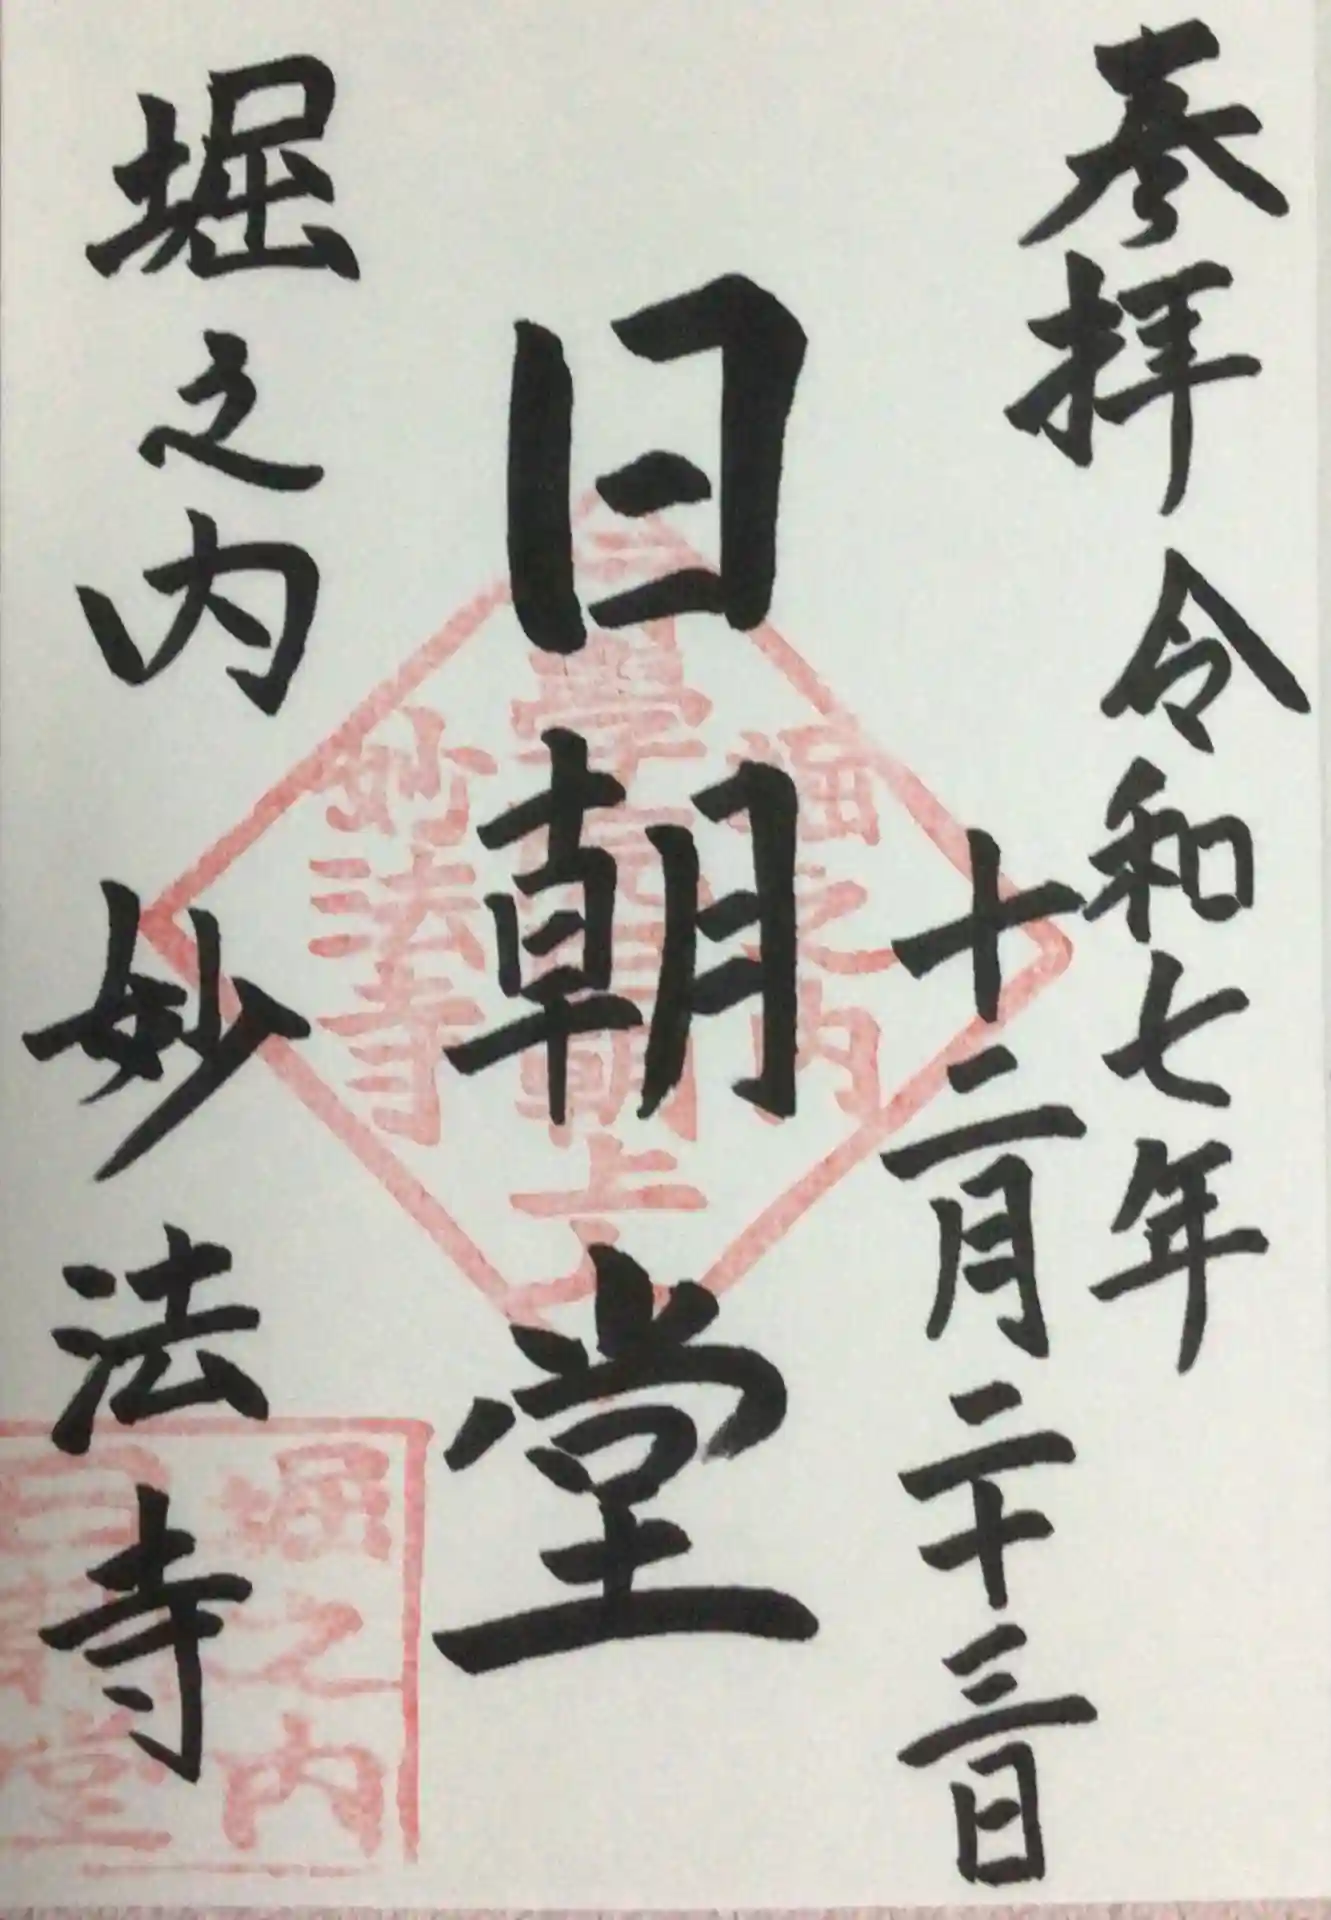 参拝 令和七年
十二月二十三日
日朝堂
堀之内 妙法寺
堀之内
妙法寺
堀之内